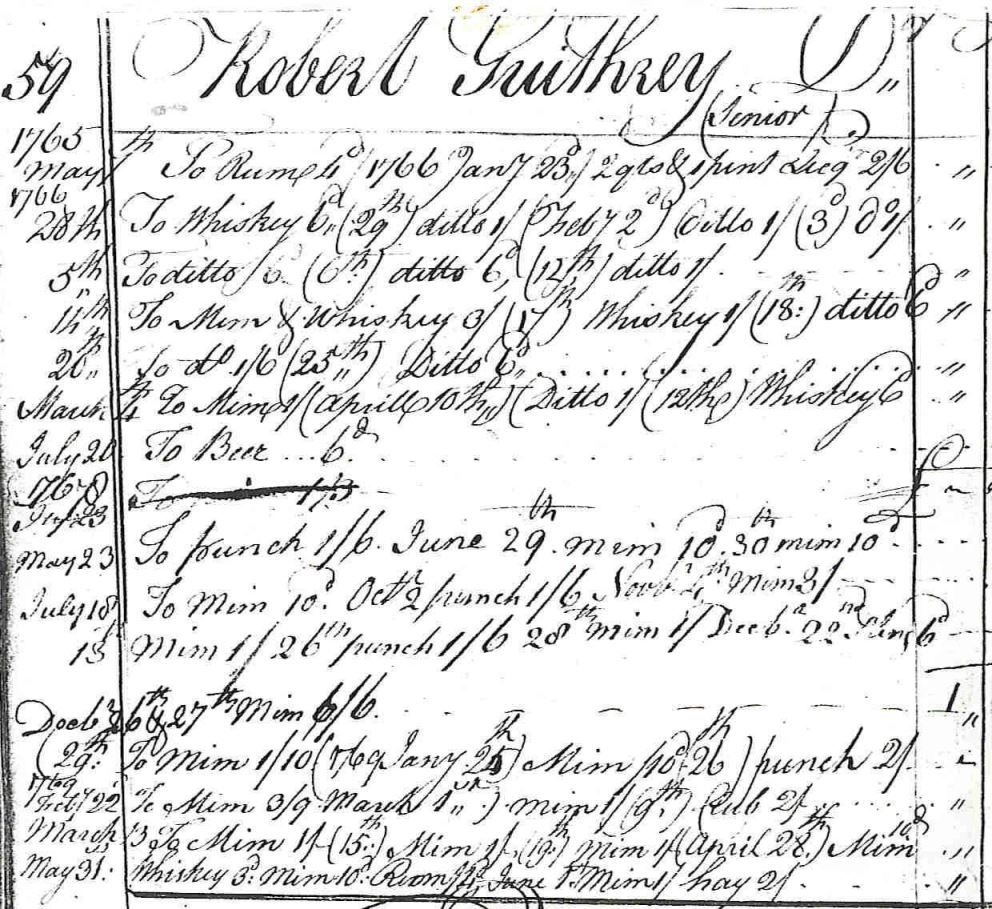 59 Robert Guithrey D,,
(Senior)
1765
May th To Rum 4d (1766 Jany 23d) 2 qts & 1 pint 2/6 ,,
1766
28th To Whiskey 6d,, (29th) ditto 1/ (Feby 2d) Ditto 1/ (3d) do 1/ ,,
5th To ditto (6th) ditto 6d, (12th) ditto 1/ ,,
To Mim & Whiskey 3/ (17th) Whiskey 1/ (18:th) ditto 6d ,,
To do 1/6 (25,,th) Ditto 6d,, ,,
March To Mim 1/ (Aprill 10th,,) (Ditto 1/ (12th) Whiskey 6d ,,
July 20 To Beer 6d
1768
To
23
May 23 To punch 1/6. June 29th. mim 10d. 30th mim 10d
July 18 To Mim 10d. Octr 2 punch 1/6 Mim 3/
Mim 1/ 26th punch 1/6 28th Mim 1/ Decbr. 22nd 6d
Decbr 26 & 27th Mim 6/6. 1,,
(29th: To Mim 1/10 (1769 Jany 25th) Mim /10d (26th) punch 2/
1769
Feby 22 To Mim 3/9 March 1,,st) mim 1/ (9th.) Club 2/ ,,
March 13 To Mim 1/ (15:th) Mim 1/, (19:th) Mim 1/ (April 28th.) Mim 10d ,,
May 31: Whiskey 3d: Mim 10d: June 1st Mim 1/ hay 2/ ,,